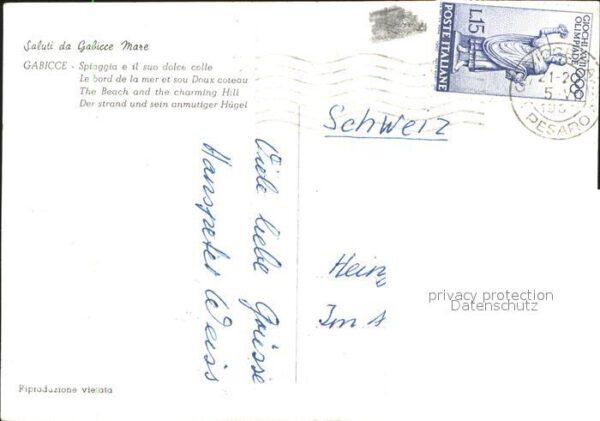 Saluti da Gabicce Mare
GABICCE - Spiaggia e il suo dolce colle
Le bord de la mer et sou Doux coteau
The Beach and the charming Hill
Der strand und sein anmutiger Hügel
L.15
POSTE ITALIANE
GIOCHI XVII
OLIMPIADE
21-2
5
PESARO
Schweiz
Viele liebe Grüsse
Hanspeter Weiss
Hein
Im A
privacy protection
Datenschutz
Riproduzione vietata